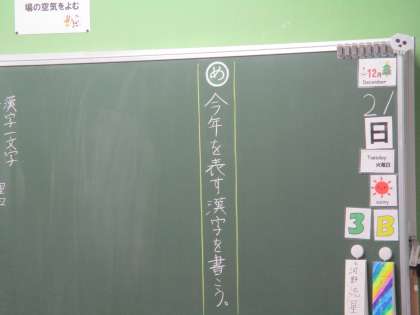 場の空気をよむ
12月
December
21
日
Tuesday
火曜日
sunny
3
B
め
今年を表す漢字を書こう。
漢字一文字